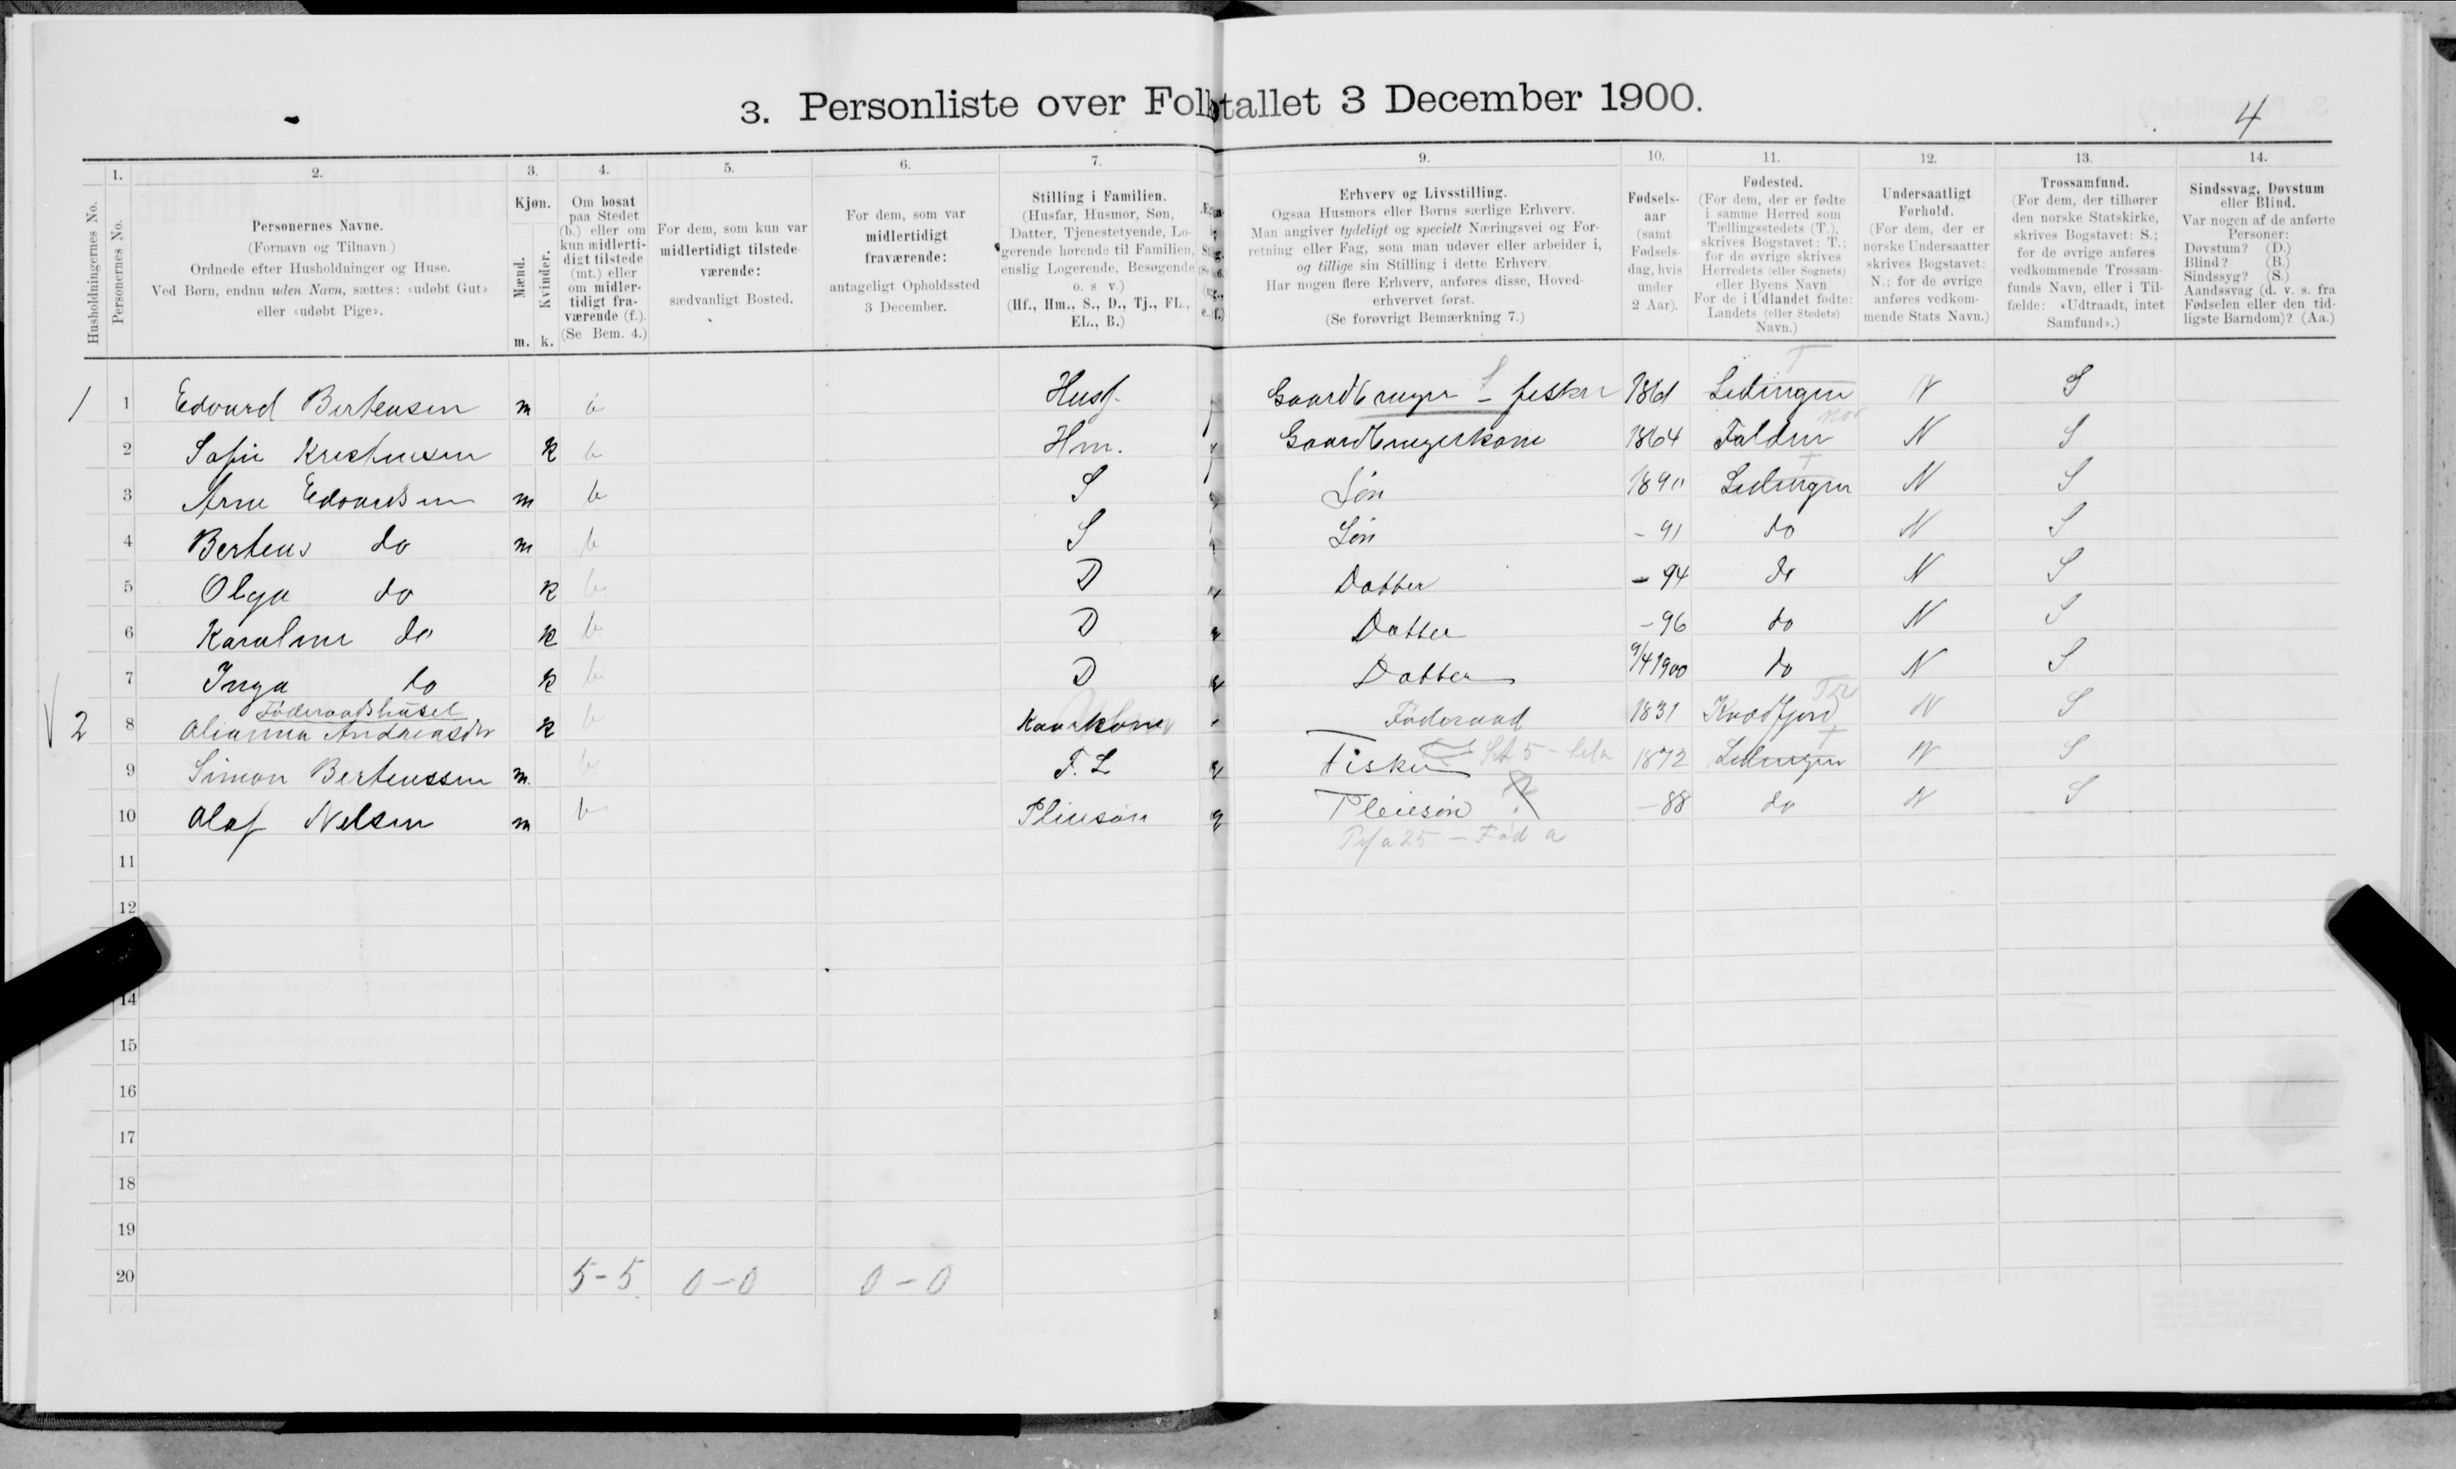 3. Personliste over Folketallet 3 December 1900.
4
1. 2. 3. 4. 5. 6. 7. 9. 10. 11. 12. 13. 14.
Husholdningernes No.
Personernes No.
Personernes Navne.
(Fornavn og Tilnavn)
Ordnede efter Husholdninger og Huse.
Ved Børn, endnu uden Navn, sættes: «udøbt Gut»
eller «udøbt Pige».
Kjøn.
Mænd.
Kvinder.
m. k.
Om bosat
paa Stedet
(b.) eller om
kun midlerti-
digt tilstede
(mt.) eller
om midler-
tidigt fra-
værende (f.).
(Se Bem. 4.)
For dem, som kun var
midlertidigt tilstede-
værende:
sædvanligt Bosted.
For dem, som var
midlertidigt
fraværende:
antageligt Opholdssted
3 December.
Stilling i Familien.
(Husfar, Husmor, Søn,
Datter, Tjenestetyende, Lo-
gerende hørende til Familien,
enslig Logerende, Besøgende
o. s v.)
(Hf., Hm., S., D., Tj., FL.,
EL., B.)
Erhverv og Livsstilling.
Ogsaa Husmors eller Børns særlige Erhverv.
Man angiver tydeligt og specielt Næringsvei og For-
retning eller Fag, som man udøver eller arbeider i,
og tillige sin Stilling i dette Erhverv.
Har nogen flere Erhverv, anføres disse, Hoved-
erhvervet først.
(Se forøvrigt Bemærkning 7.)
Fødsels-
aar
(samt
Fødsels-
dag, hvis
under
2 Aar).
Fødested.
(For dem, der er fødte
i samme Herred som
Tællingsstedets (T.),
skrives Bogstavet: T.;
for de øvrige skrives
Herredets (eller Sognets)
eller Byens Navn
For de i Udlandet fødte:
Landets (eller Stedets)
Navn.)
Undersaatligt
Forhold.
(For dem, der er
norske Undersaatter
skrives Bogstavet:
N.; for de øvrige
anføres vedkom-
mende Stats Navn.)
Trossamfund.
(For dem, der tilhører
den norske Statskirke,
skrives Bogstavet: S.;
for de øvrige anføres
vedkommende Trossam-
funds Navn, eller i Til-
fælde: «Udtraadt, intet
Samfund».)
Sindssvag, Døvstum
eller Blind.
Var nogen af de anførte
Personer:
Døvstum? (D.)
Blind? (B.)
Sindssyg? (S.)
Aandssvag (d. v. s. fra
Fødselen eller den tid-
ligste Barndom)? (Aa.)
1 1 Edvard Bertensen m b Husf. Gaardbruger - fisker 1861 Lødingen T N S
2 Sofie Kristensen k b Hm. Gaardbrugerkone 1864 Folden N S
3 Arne Edvardsen m b S Søn 1890 Lødingen T N S
4 Berteus do m b S Søn - 91 do N S
5 Olga do k b D Datter - 94 do N S
6 Karoline do k b D Datter - 96 do N S
7 Inga do k b D Datter 9/4 1900 do N S
Föderaadshuset
2 8 Olianna Andreasdtr k b Kaarkone Föderaad 1831 Kvædfjord N S
9 Simon Berteussen m b F. L Fisker 1872 Lødingen T N S
10 Olaf Nilsen m b Pleiesön Pleiesön - 88 do N S
11
12
14
15
16
17
18
19
20 5 - 5 0 - 0 0 - 0